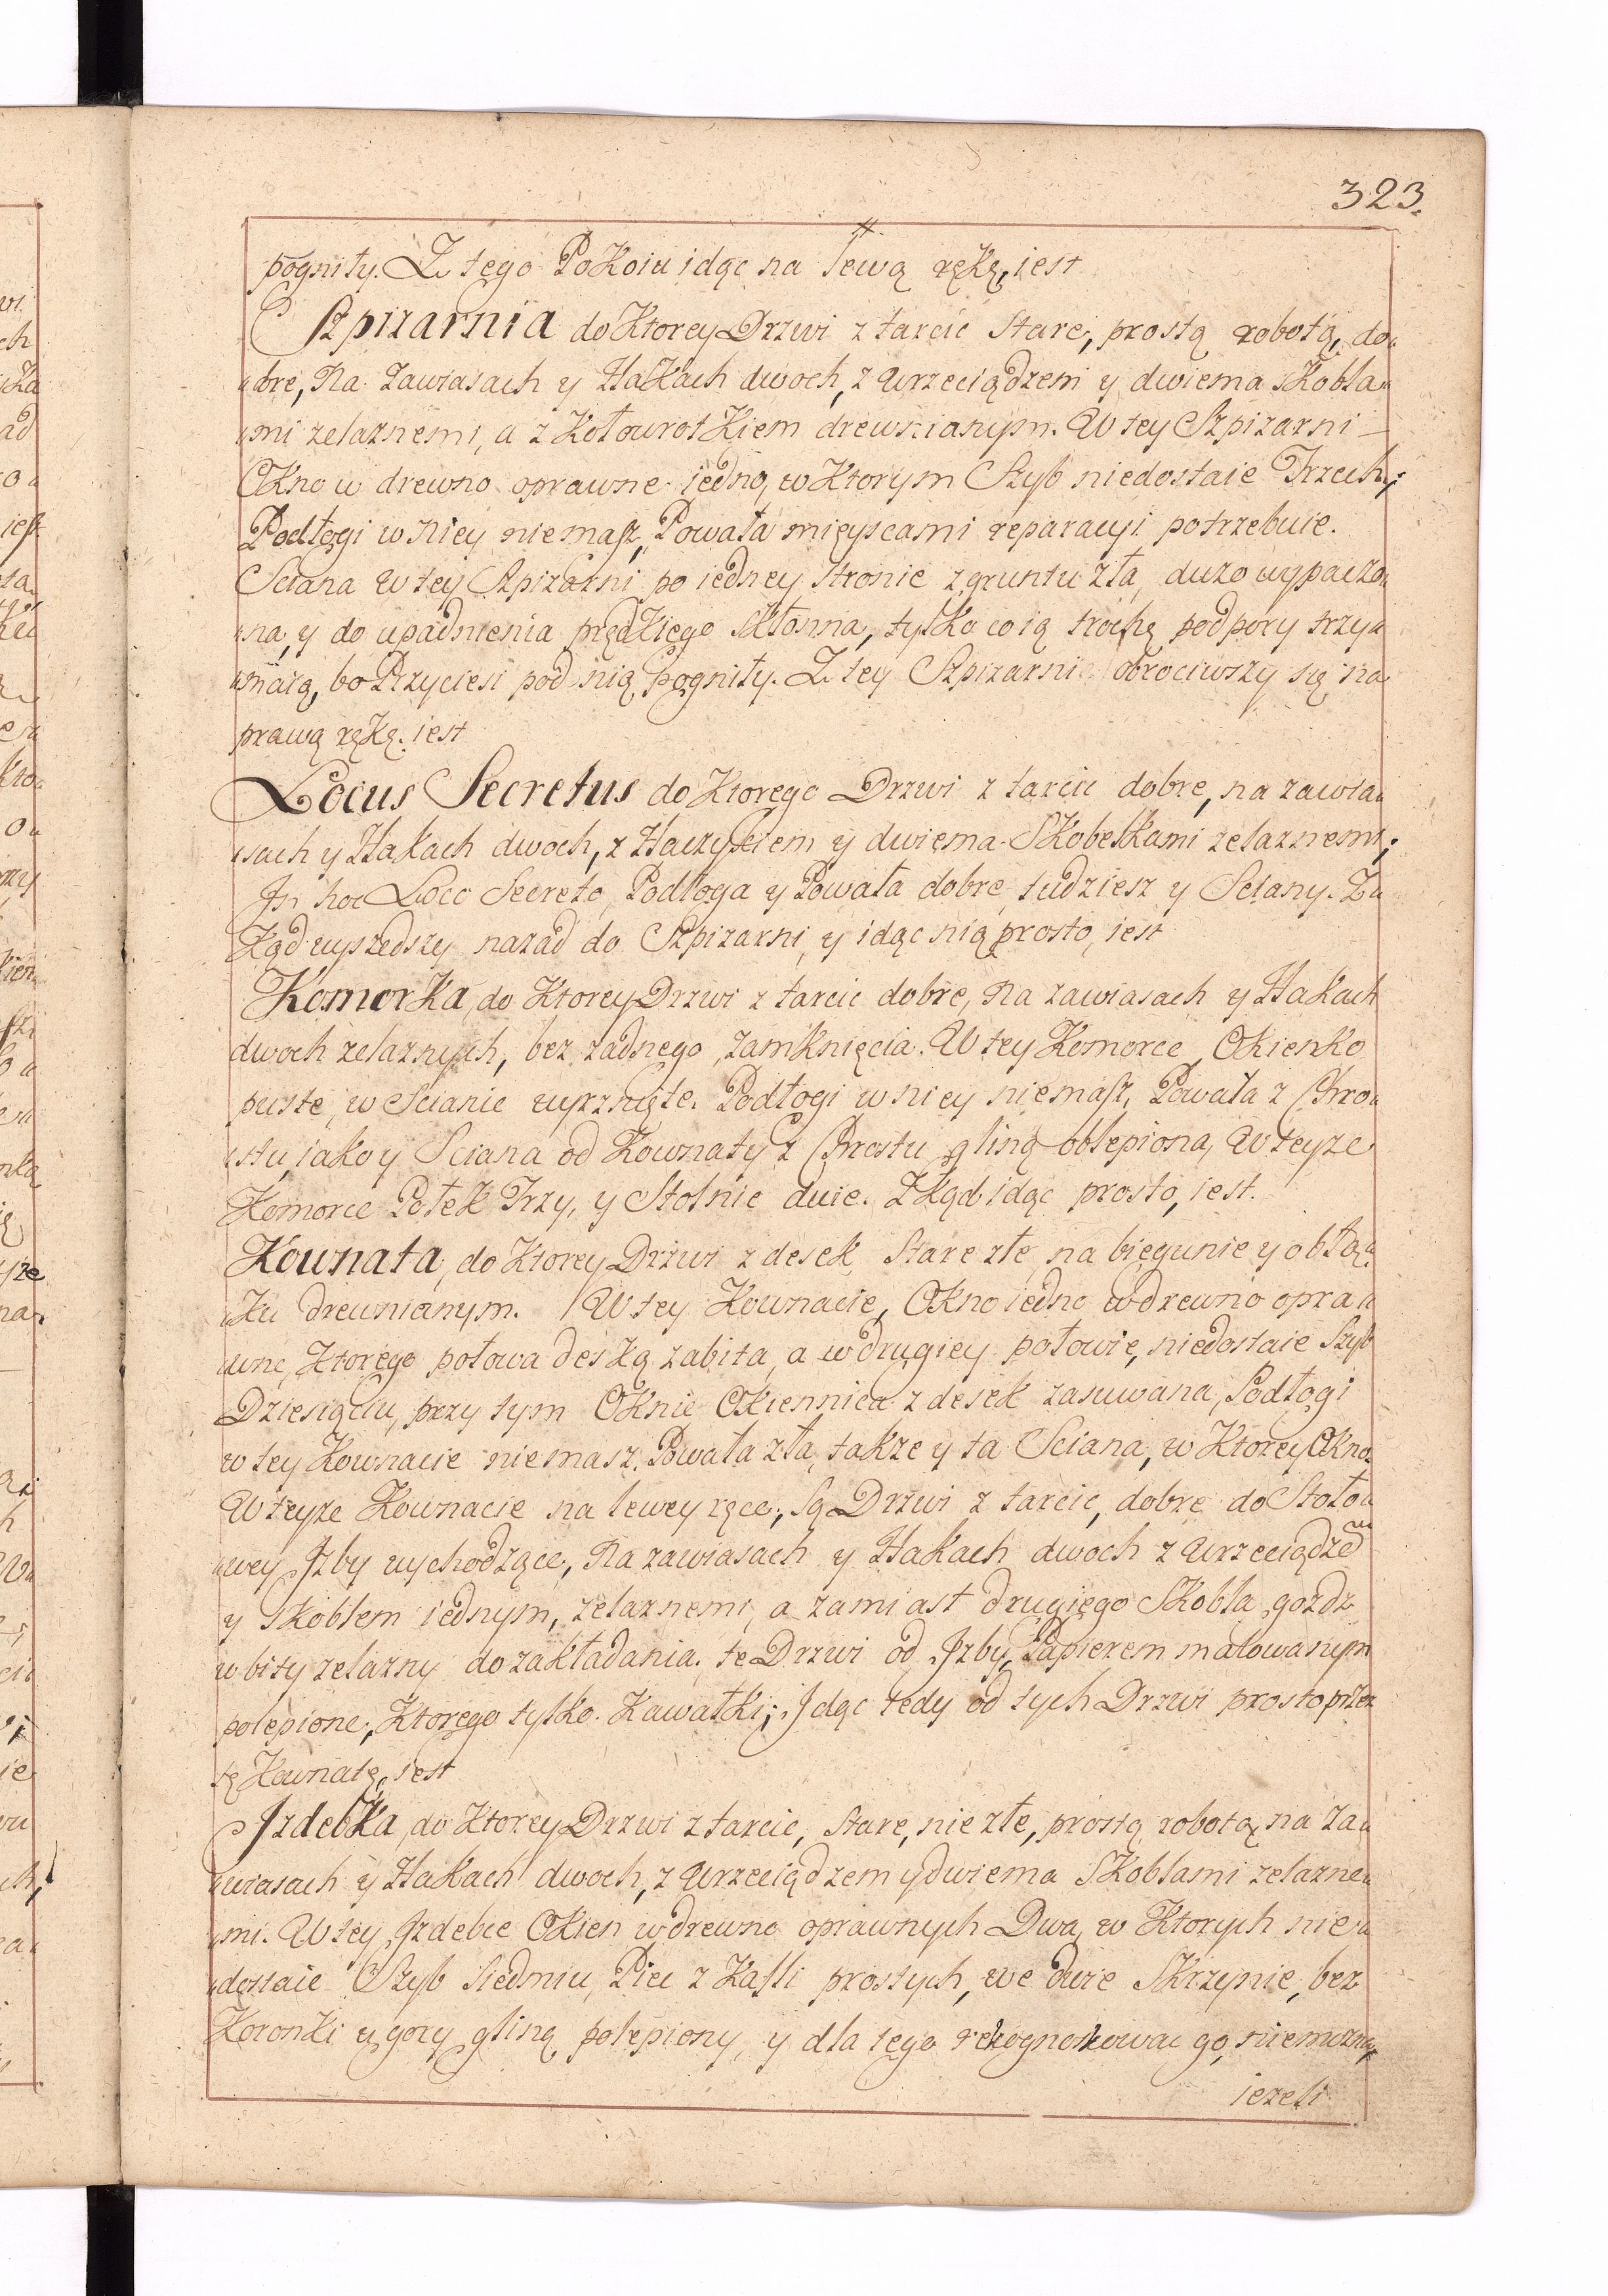 323.
pogniły. Z tego Pokoiu idąc na lewą rękę, iest
Szpizarnia do Ktorey Drzwi z tarcic Stare, prostą robotą, do„
„bre, Na Zawiasach y Hakach dwoch, z Wrzeciądzem y dwiema Skobla„
„mi zelaznemi, a z Kołowrotkiem drewnianym. W tey Szpizarni
Okno w drewno oprawne iedno, w Ktorym Szyb niedostaie Trzech;
Podłogi w Niey niemasz, Powała mięyscami reparacyi potrzebuie.
Sciana W tey Szpizarni po iedney Stronie z gruntu zła, duzo wypaczo„
„na, y do upadnienia prędkiego Skłonna, tylko co ią trochę podpory trzy„
„maią, bo Przyciesi pod nią pogniły. Z tey Szpizarni obrociwszy się na
prawą rękę. iest
Locus Secretus do Ktorego Drzwi z tarcic dobre, na zawia„
„sach y Hakach dwoch, z Haczykiem y dwiema Skobelkami zelaznemi;
In hoc Loco Secreto, Podłoga y Powała dobre, tudziesz y Sciany. Z„
Kąd wyszedszy nazad do Szpizarni, y idąc nią prosto, iest
Komorka, do Ktorey Drzwi z tarcic dobre, Na zawiasach y Hakach
dwoch zelaznych, bez zadnego zamknięcia. W tey Komorce, Okienko
puste, w Scianie wyrznięte. Podłogi w niey niemasz, Powała z Chro„
„stu, iako y Sciana od Kownaty z Chrostu gliną oblepiona, W teyze
Komorce Połek Trzy, y Stolnic dwie. Zkąd idąc prosto, iest.
Kownata, do Ktorey Drzwi z desek Stare złe, na biegunie y obłą„
„Ku drewnianym. W tey Kownacie, Okno iedno w drewno opra„
„wne, Ktorego połowa deską zabita, a w drugiey połowie, niedostaie Szyb
Dziesięciu, przy tym Oknie Okiennica z desek zasuwana, Podłogi
w tey Kownacie niemasz. Powała zła, takze y ta Sciana, w Ktorey Okno.
W teyze Kownacie na lewey ręce, Są Drzwi z tarcic, dobre do Stoło„
„wey Izby wychodzące, Na zawiasach y Hakach dwoch z Wrzeciądzem̃
y Skoblem iednym, zelaznemi, a zamiast drugiego Skobla, gozdz
wbity zelazny do zakładania. te Drzwi od Izby, Papierem malowanym
polepione, Ktorego tylko Kawałki; Idąc tedy od tych Drzwi prosto przez
tę Kownatę, iest
Izdebka, do Ktorey Drzwi z tarcic, Stare, nie złe, prostą robotą, na Za„
„wiasach y Hakach dwoch, z Wrzeciądzem y dwiema Skoblami zelazne„
„mi. W tey Izdebce Okien w drewno oprawnych Dwa, w Ktorych nie„
„dostaie Szyb Siedmiu, Piec z Kafli prostych, we dwie Skrzynie, bez
Koronki u gory gliną polepiony, y dla tego rekognoskowac go, niemozna,
iezeli